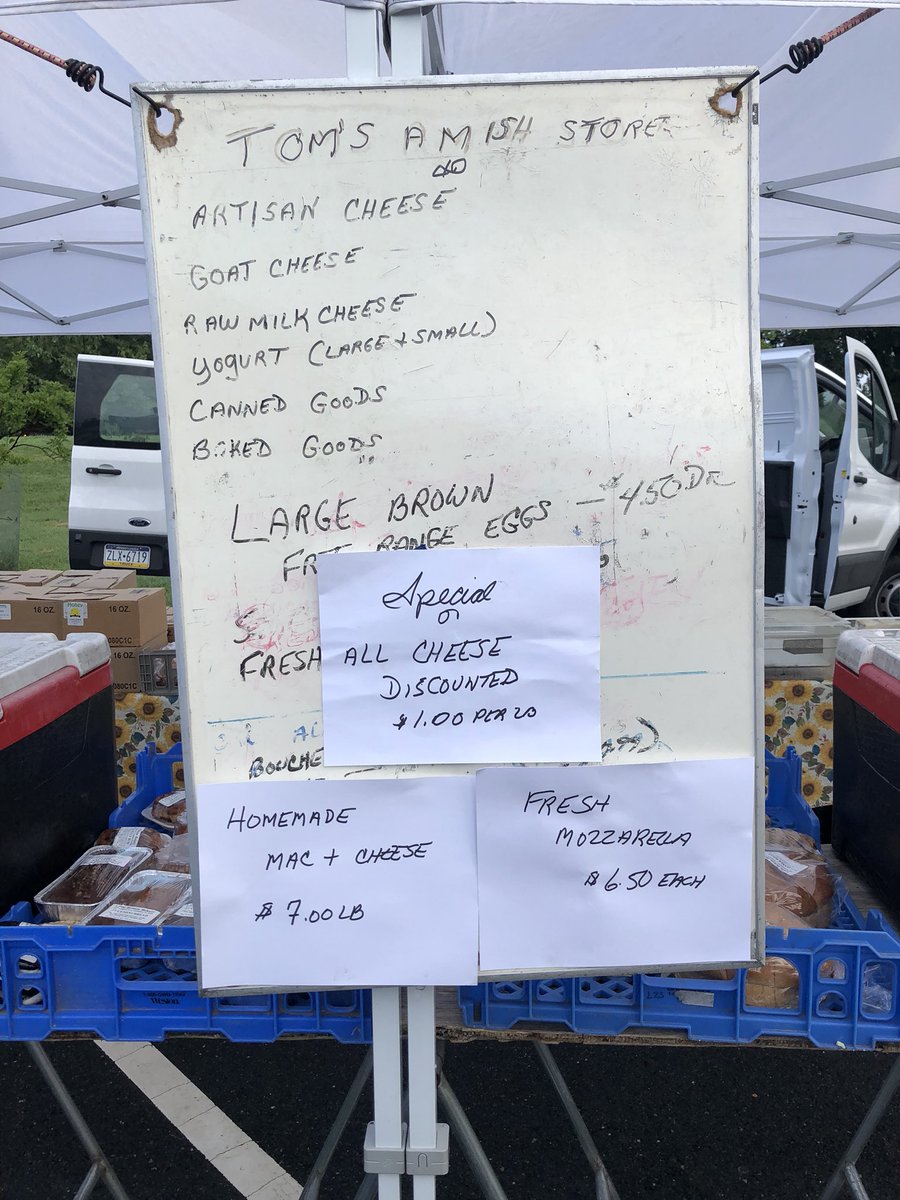 TOM'S AMISH STORE
ARTISAN CHEESE
GOAT CHEESE
RAW MILK CHEESE
YOGURT (LARGE + SMALL)
CANNED GOODS
BAKED GOODS
LARGE BROWN
RANGE EGGS - $4.50 DZ
FRESH
Special
ALL CHEESE
DISCOUNTED
$1.00 PER LB
BOUCHE
HOMEMADE
MAC + CHEESE
$ 7.00 LB
FRESH
MOZZARELLA
$ 6.50 EACH
ZLX 6719
16 OZ.
16 OZ.
080C1C